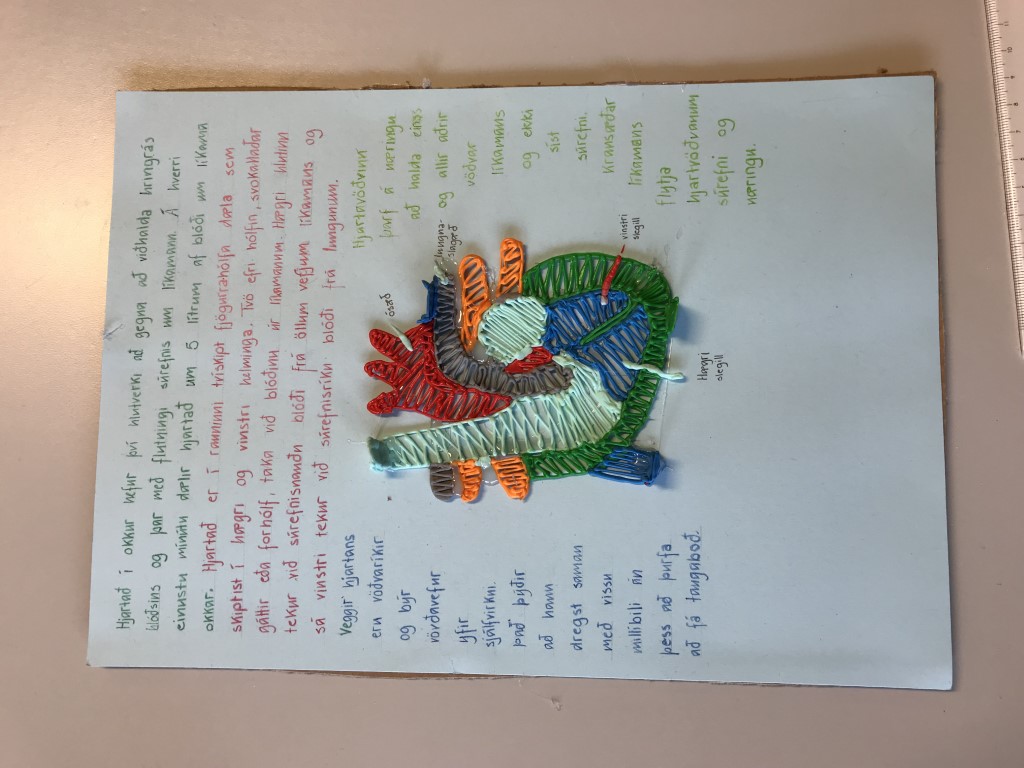 Hjartað í okkur hefur því hlutverki að gegna að viðhalda hringrás
blóðsins og þar með flutningi súrefnis um líkamann. Á hverri
einustu mínútu dælir hjartað um 5 lítrum af blóði um líkama
okkar. Hjartað er í rauninni tvískipt fjögurrahólfa dæla sem
skiptist í hægri og vinstri helminga. Tvö efri hólfin, svokallaðar
gáttir eða forhólf, taka við blóðinu úr líkamanum. Hægri hlutinn
tekur við súrefnisnauðu blóði frá öllum vefjum líkamans og
sá vinstri tekur við súrefnisríku blóði frá lungunum.
Veggir hjartans
eru vöðvaríkir
og býr
vövðavefur
yfir
sjálfvirkni.
það þýðir
að hann
dregst saman
með vissu
millibili án
þess að þurfa
að fá taugaboð.
Hjartavöðvinn
þarf á næringu
að halda eins
og allir aðrir
vöðvar
líkamans
og ekki
síst
súrefni.
Kransæðar
líkamans
flytja
hjartvöðvanum
súrefni og
næringu.
ósæð
lungna-
slagæð
vinstri
slegill
Hægri
slegill